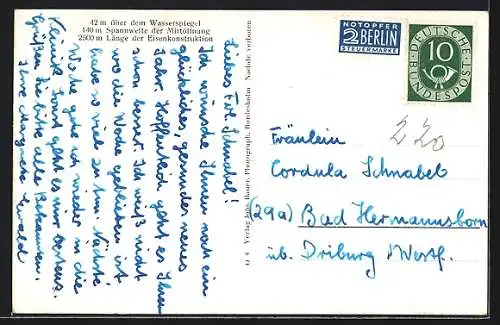 42 m über dem Wasserspiegel
140 m Spannweite der Mittöffnung
2500 m Länge der Eisenkonstruktion
Liebes Frl. Schnabel!
Ich wünsche Ihnen noch ein
glückliches, gesundes neues
Jahr. Hoffentlich geht es Ihnen
schon besser. Ich weiß nicht
wo die Woche geblieben ist
habe so viel zu tun. Nächste
Woche gehe ich wieder in die
Klinik. Sonst geht es mir bestens.
Grüßen Sie bitte alle Bekannten.
Ihre Margarete
O 8 Verlag Bauer, Photograph, Nachdr. verboten
NOTOPFER
2 BERLIN
STEUERMARKE
DEUTSCHE
BUNDESPOST
10
220
Fräulein
Cordula Schnabel
(29a) Bad Hermannsborn
üb. Driburg / Westf.